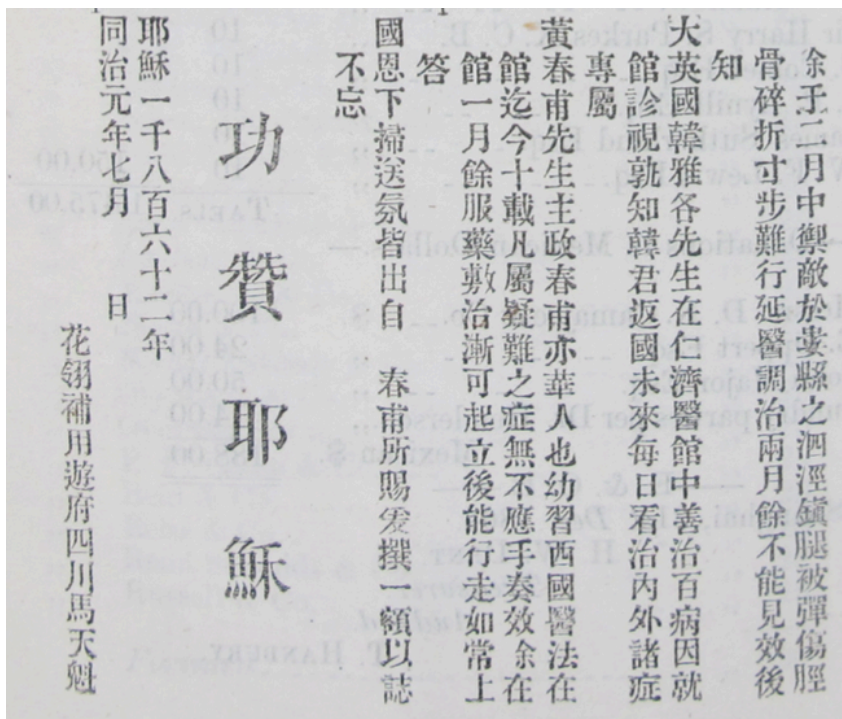 余于二月中禦敵於婁縣之泗涇鎮腿被彈傷脛
骨碎折寸步難行延醫調治兩月餘不能見效後
知
大英國韓雅各先生在仁濟醫館中善治百病因就
館診視孰知韓君返國未來每日看治內外諸症
專屬
黃春甫先生主政春甫亦華人也幼習西國醫法在
館迄今十載凡屬疑難之症無不應手奏效余在
館一月餘服藥敷治漸可起立後能行走如常上
答
國恩下掃送氛皆出自 春甫所賜爰撰一額以誌
不忘
功贊耶穌
耶穌一千八百六十二年
同治元年七月 日
花翎補用遊府四川馬天魁